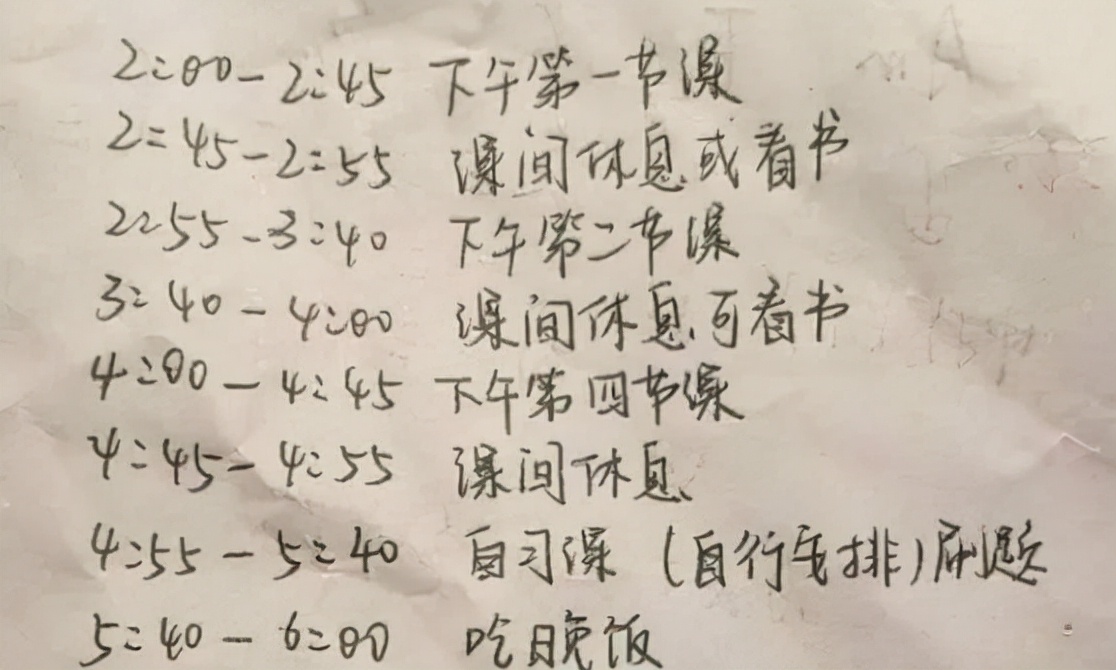 2:00-2:45 下午第一节课
2:45-2:55 课间休息或看书
2:55-3:40 下午第二节课
3:40-4:00 课间休息可看书
4:00-4:45 下午第四节课
4:45-4:55 课间休息
4:55-5:40 自习课(自行安排)刷题
5:40-6:00 吃晚饭